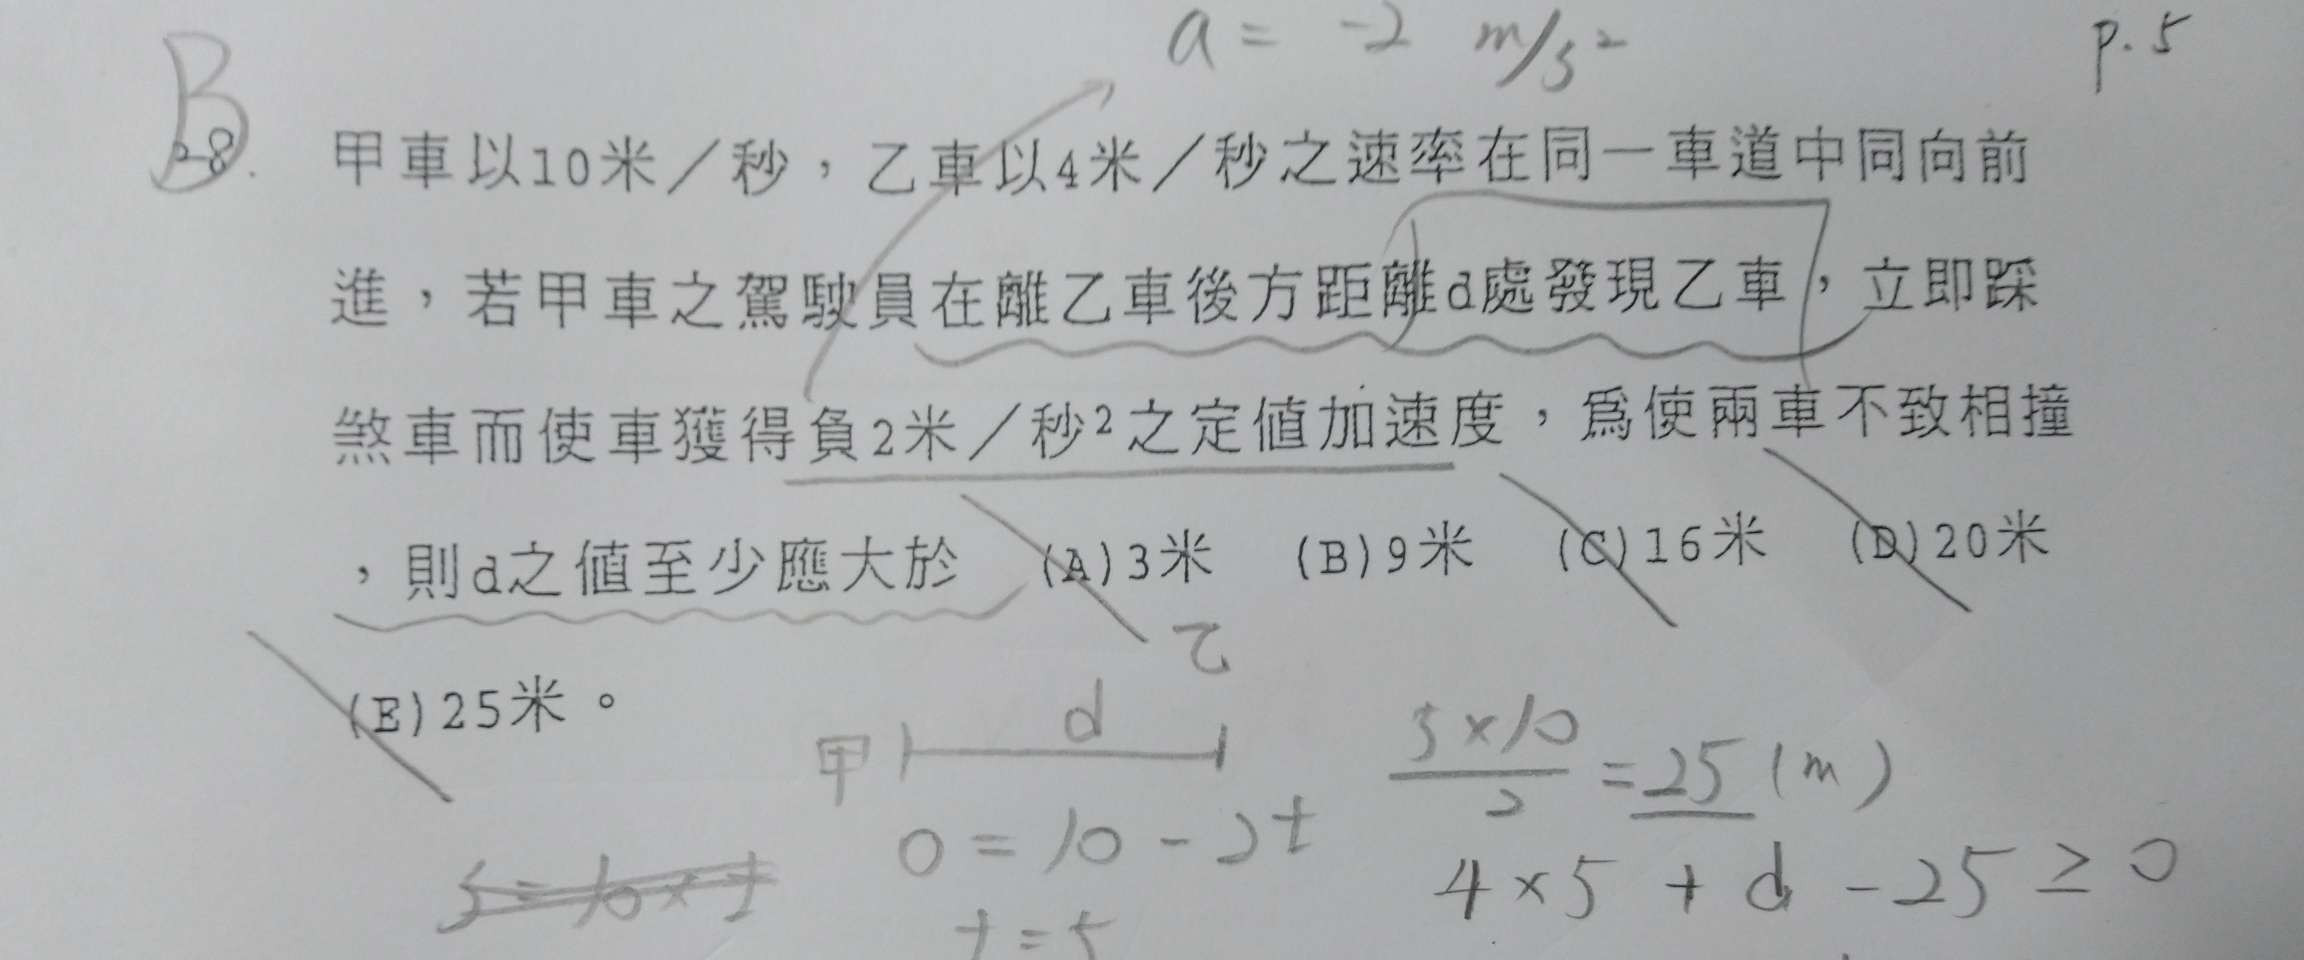 a = -2 m/s²
p.5
B
28. 甲車以10米／秒，乙車以4米／秒之速率在同一車道中同向前
進，若甲車之駕駛員在離乙車後方距離d處發現乙車，立即踩
煞車而使車獲得負2米／秒²之定值加速度，爲使兩車不致相撞
，則d之值至少應大於 (A)3米 (B)9米 (C)16米 (D)20米
(E)25米。
乙
d
甲
5×10/2 = 25 (m)
0 = 10 - 2t
4×5 + d - 25 ≥ 0
t = 5